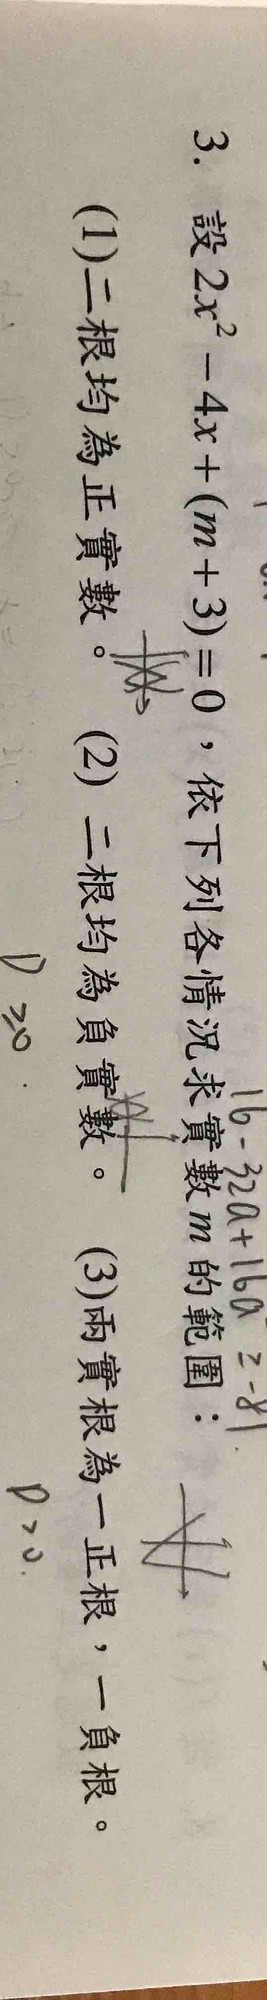 16-32a+16a²=-81
3. 設2x²-4x+(m+3)=0，依下列各情況求實數m的範圍：
(1)二根均為正實數。 (2) 二根均為負實數。 (3)兩實根為一正根，一負根。
D≥0. D>0.